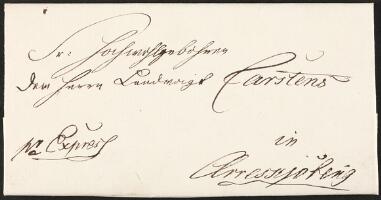 Sr: Hochwohlgebohren
dem Herrn Landvogt Carstens
in
pr Expres
Arroeskjöbing